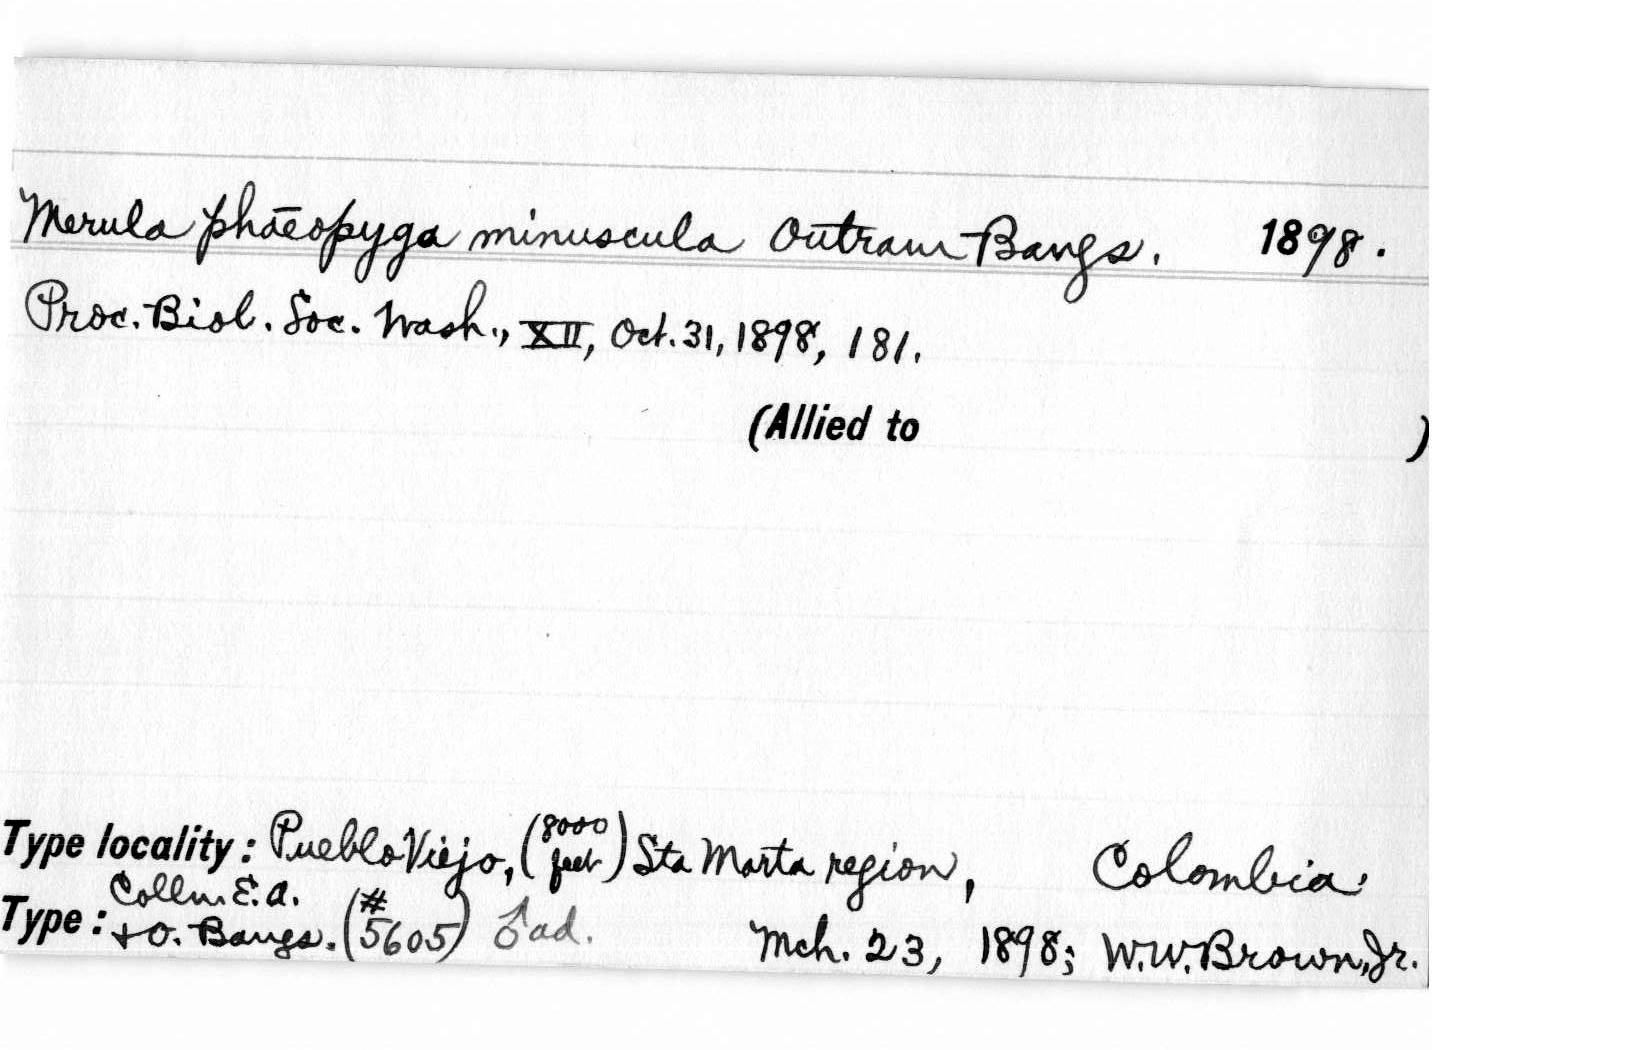 Merula phaeopyga minuscula Outram Bangs. 1898.
Proc. Biol. Soc. Wash., XII, Oct. 31, 1898, 181.
(Allied to )
Type locality: Pueblo Viejo, (8000 feet) Sta Marta region, Colombia.
Type: Colln. E. A. & O. Bangs. (# 5605) ♂ ad. Mch. 23, 1898; W. W. Brown, Jr.